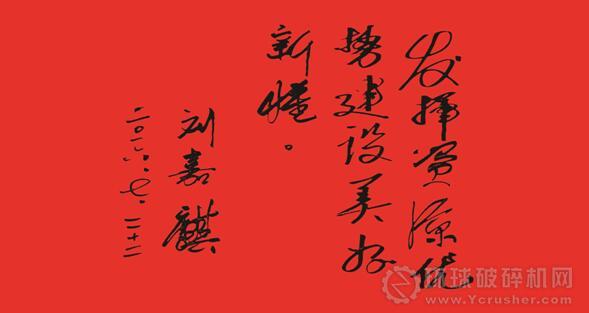 发挥资源优
势建设美好
新疆。
刘嘉麒
二〇一六.七.二十二
环球破碎机网
www.Ycrusher.com